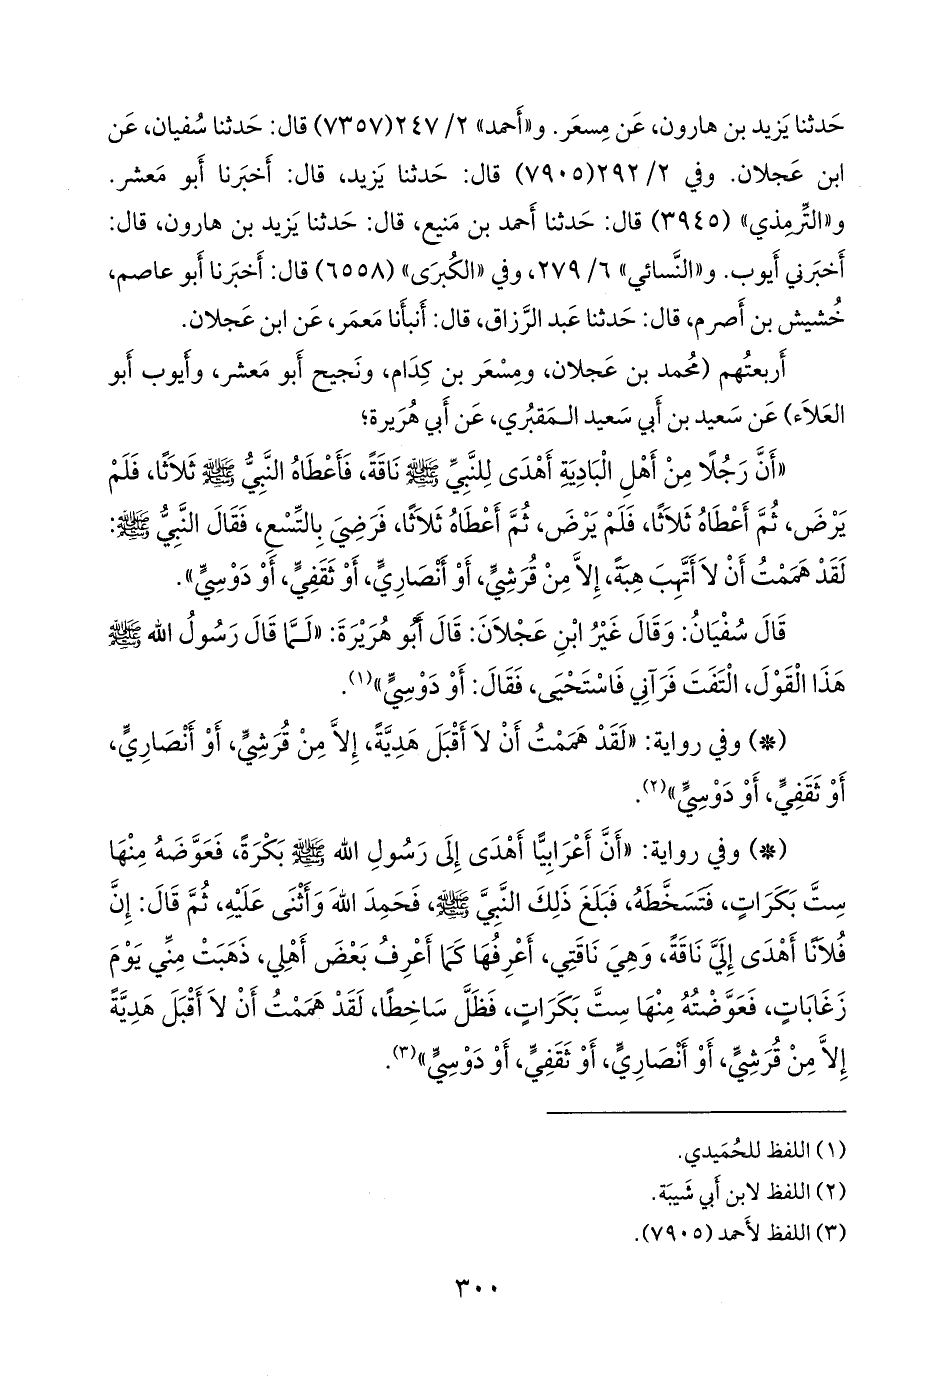 حَدثنا يَزيد بن هارون، عَن مِسعَر. و«أَحمد» ٢/ ٢٤٧(٧٣٥٧) قال: حَدثنا سُفيان، عَن
ابن عَجلان. وفي ٢/ ٢٩٢(٧٩٠٥) قال: حَدثنا يَزيد، قال: أَخبَرنا أَبو مَعشر.
و«التِّرمِذي» (٣٩٤٥) قال: حَدثنا أَحمد بن مَنيع، قال: حَدثنا يَزيد بن هارون، قال:
أَخبَرني أَيوب. و«النَّسائي» ٦/ ٢٧٩، وفي «الكُبرَى» (٦٥٥٨) قال: أَخبَرنا أَبو عاصم،
خُشيش بن أَصرم، قال: حَدثنا عَبد الرَّزاق، قال: أَنبأَنا مَعمَر، عَن ابن عَجلان.
أَربعتُهم (مُحمد بن عَجلان، ومِسْعَر بن كِدَام، ونَجيح أَبو مَعشر، وأَيوب أَبو
العَلاَء) عَن سَعيد بن أَبي سَعيد الـمَقبُري، عَن أَبي هُرَيرة؛
«أَنَّ رَجُلًا مِنْ أَهْلِ الْبَادِيَةِ أَهْدَى لِلنَّبِيِّ ﷺ نَاقَةً، فَأَعْطَاهُ النَّبِيُّ ﷺ ثَلاَثًا، فَلَمْ
يَرْضَ، ثُمَّ أَعْطَاهُ ثَلاَثًا، فَلَمْ يَرْضَ، ثُمَّ أَعْطَاهُ ثَلاَثًا، فَرَضِيَ بِالتِّسْعِ، فَقَالَ النَّبِيُّ ﷺ:
لَقَدْ هَمَمْتُ أَنْ لاَ أَتَّهِبَ هِبَةً، إِلاَّ مِنْ قُرَشِيٍّ، أَوْ أَنْصَارِيٍّ، أَوْ ثَقَفِيٍّ، أَوْ دَوْسِيٍّ».
قَالَ سُفْيَانُ: وَقَالَ غَيْرُ ابْنِ عَجْلاَنَ: قَالَ أَبُو هُرَيْرَةَ: «لَـمَّا قَالَ رَسُولُ الله ﷺ
هَذَا الْقَوْلَ، الْتَفَتَ فَرَآنِي فَاسْتَحْيَى، فَقَالَ: أَوْ دَوْسِيٍّ»(١).
(*) وفي رواية: «لَقَدْ هَمَمْتُ أَنْ لاَ أَقْبَلَ هَدِيَّةً، إِلاَّ مِنْ قُرَشِيٍّ، أَوْ أَنْصَارِيٍّ،
أَوْ ثَقَفِيٍّ، أَوْ دَوْسِيٍّ»(٢).
(*) وفي رواية: «أَنَّ أَعْرَابِيًّا أَهْدَى إِلَى رَسُولِ الله ﷺ بَكْرَةً، فَعَوَّضَهُ مِنْهَا
سِتَّ بَكَرَاتٍ، فَتَسَخَّطَهُ، فَبَلَغَ ذَلِكَ النَّبِيَّ ﷺ، فَحَمِدَ اللهَ وَأَثْنَى عَلَيْهِ، ثُمَّ قَالَ: إِنَّ
فُلاَنًا أَهْدَى إِلَيَّ نَاقَةً، وَهِيَ نَاقَتِي، أَعْرِفُهَا كَمَا أَعْرِفُ بَعْضَ أَهْلِي، ذَهَبَتْ مِنِّي يَوْمَ
زَغَابَاتٍ، فَعَوَّضْتُهُ مِنْهَا سِتَّ بَكَرَاتٍ، فَظَلَّ سَاخِطًا، لَقَدْ هَمَمْتُ أَنْ لاَ أَقْبَلَ هَدِيَّةً
إِلاَّ مِنْ قُرَشِيٍّ، أَوْ أَنْصَارِيٍّ، أَوْ ثَقَفِيٍّ، أَوْ دَوْسِيٍّ»(٣).
(١) اللفظ للحُمَيدي.
(٢) اللفظ لابن أَبي شَيبَة.
(٣) اللفظ لأَحمد (٧٩٠٥).
٣٠٠